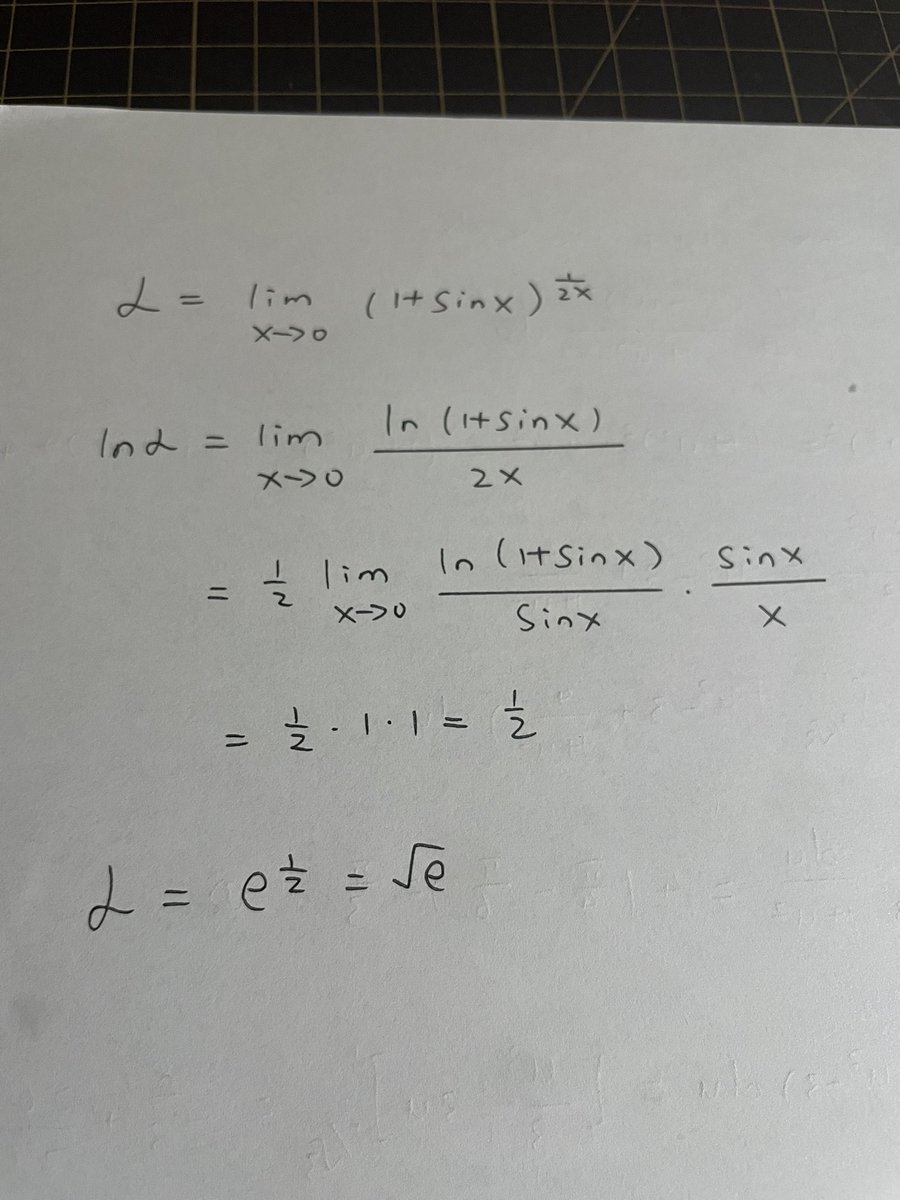 L = lim x→0 (1+sinx)^(1/2x)
lnL = lim x→0 ln(1+sinx)/2x
= 1/2 lim x→0 ln(1+sinx)/sinx · sinx/x
= 1/2 · 1 · 1 = 1/2
L = e^(1/2) = √e